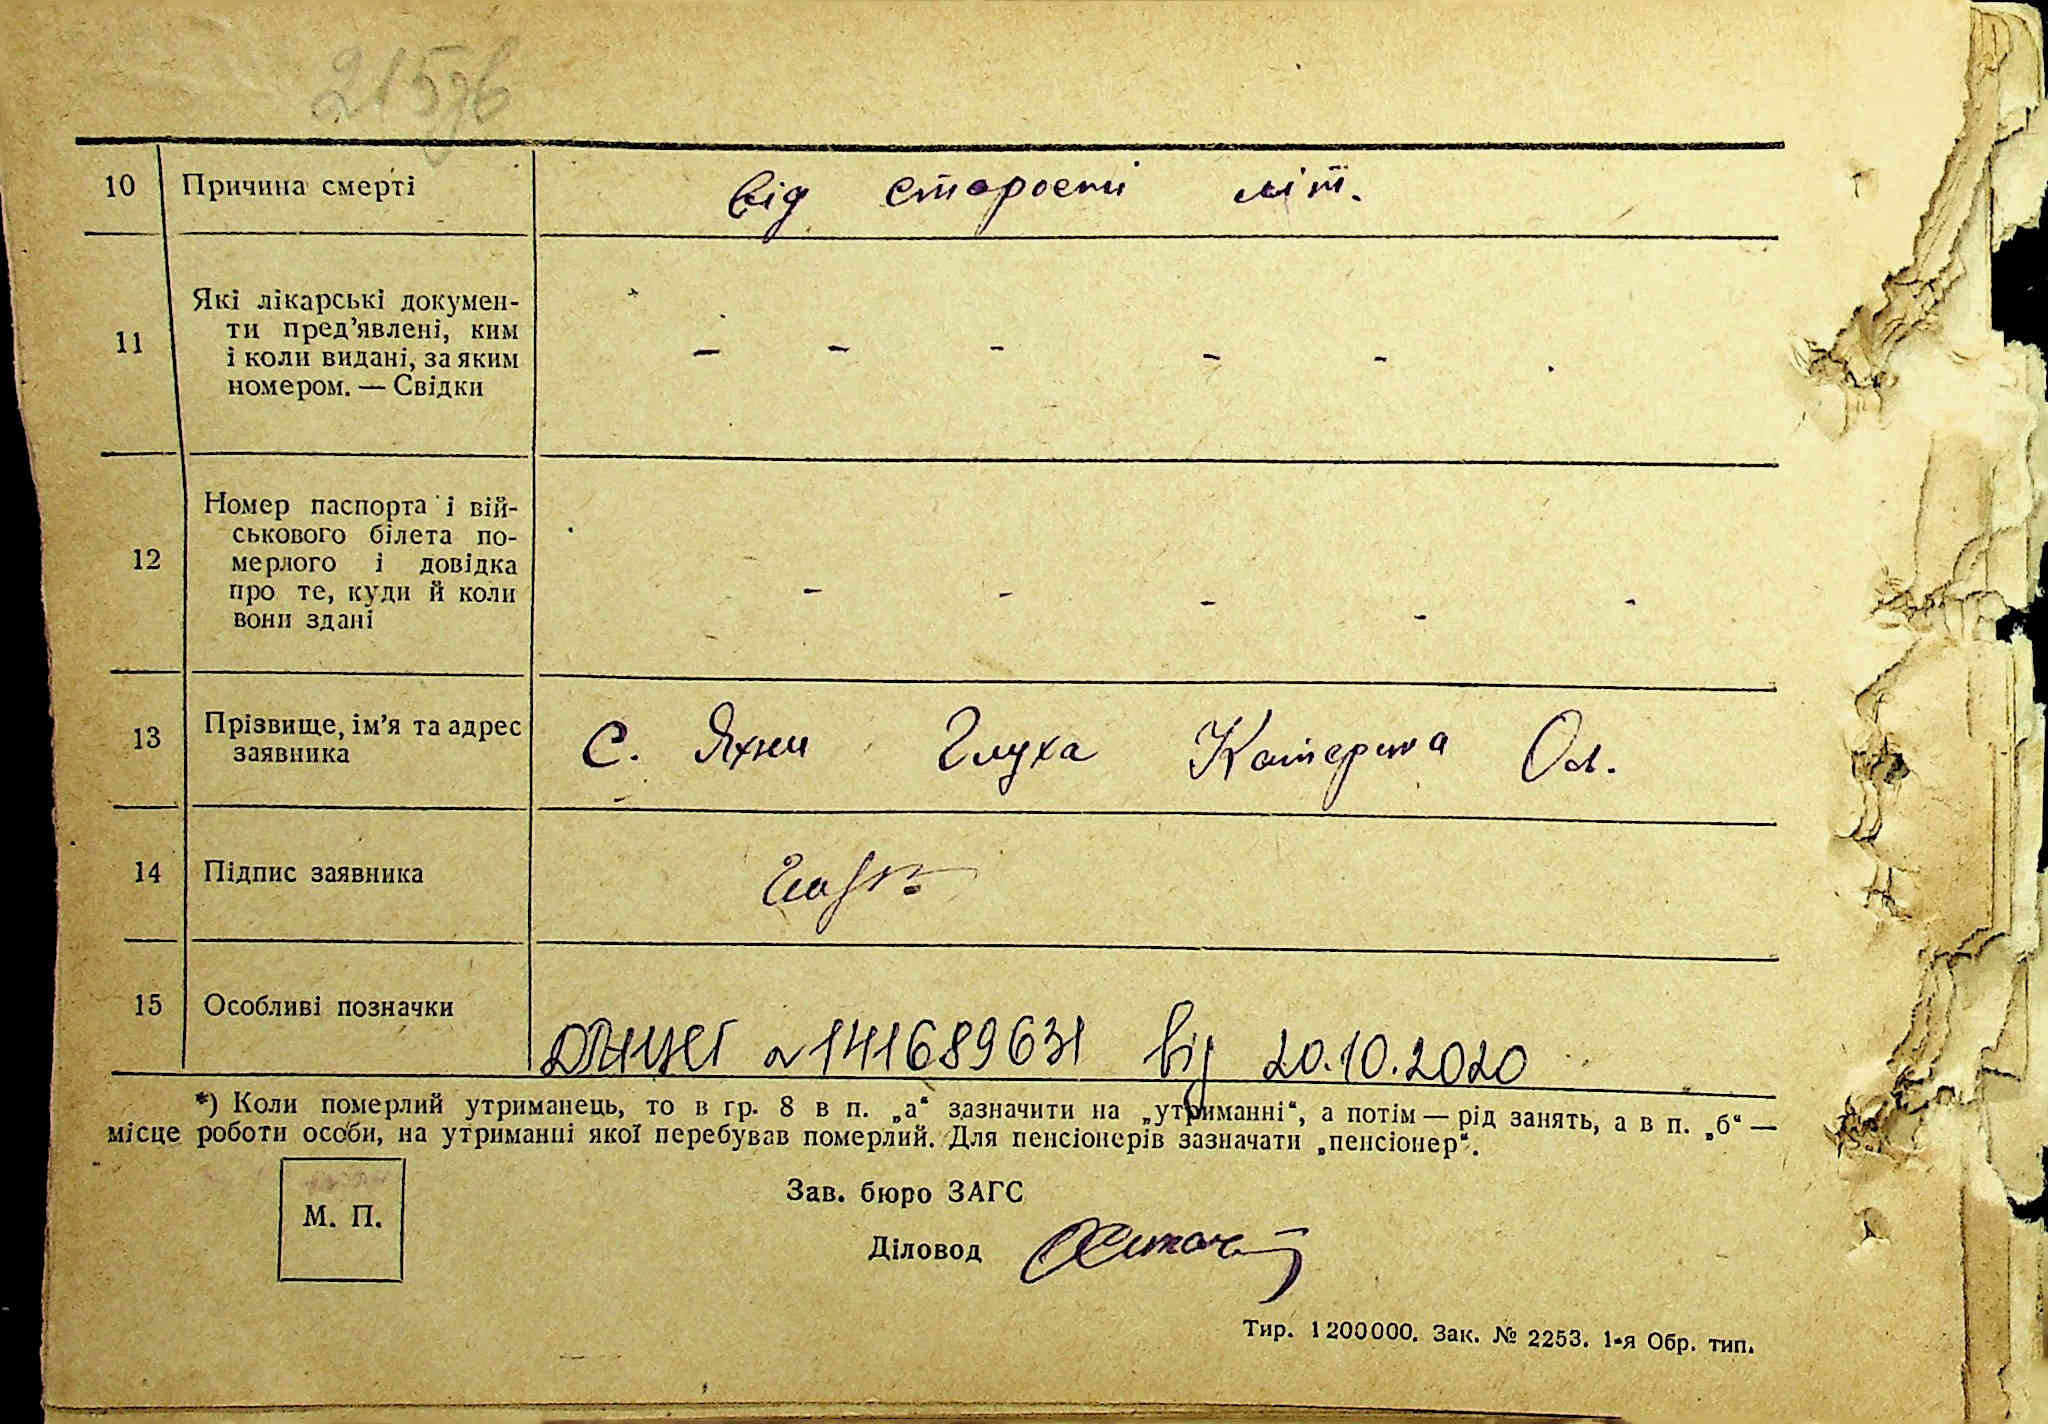 215зв
10 Причина смерті від старости літ.
11 Які лікарські докумен-
ти пред’явлені, ким
і коли видані, за яким
номером. — Свідки
- - - - -
12 Номер паспорта і вій-
ськового білета по-
мерлого і довідка
про те, куди й коли
вони здані
- - - - -
13 Прізвище, ім’я та адрес
заявника
С. Яхни Глуха Катерина Ол.
14 Підпис заявника
15 Особливі позначки
141689631 від 20.10.2020
*) Коли померлий утриманець, то в гр. 8 в п. „а“ зазначити на „утриманні“, а потім — рід занять, а в п. „б“ —
місце роботи особи, на утриманні якої перебував померлий. Для пенсіонерів зазначати „пенсіонер“.
М. П.
Зав. бюро ЗАГС
Діловод
Тир. 1200000. Зак. № 2253. 1-я Обр. тип.